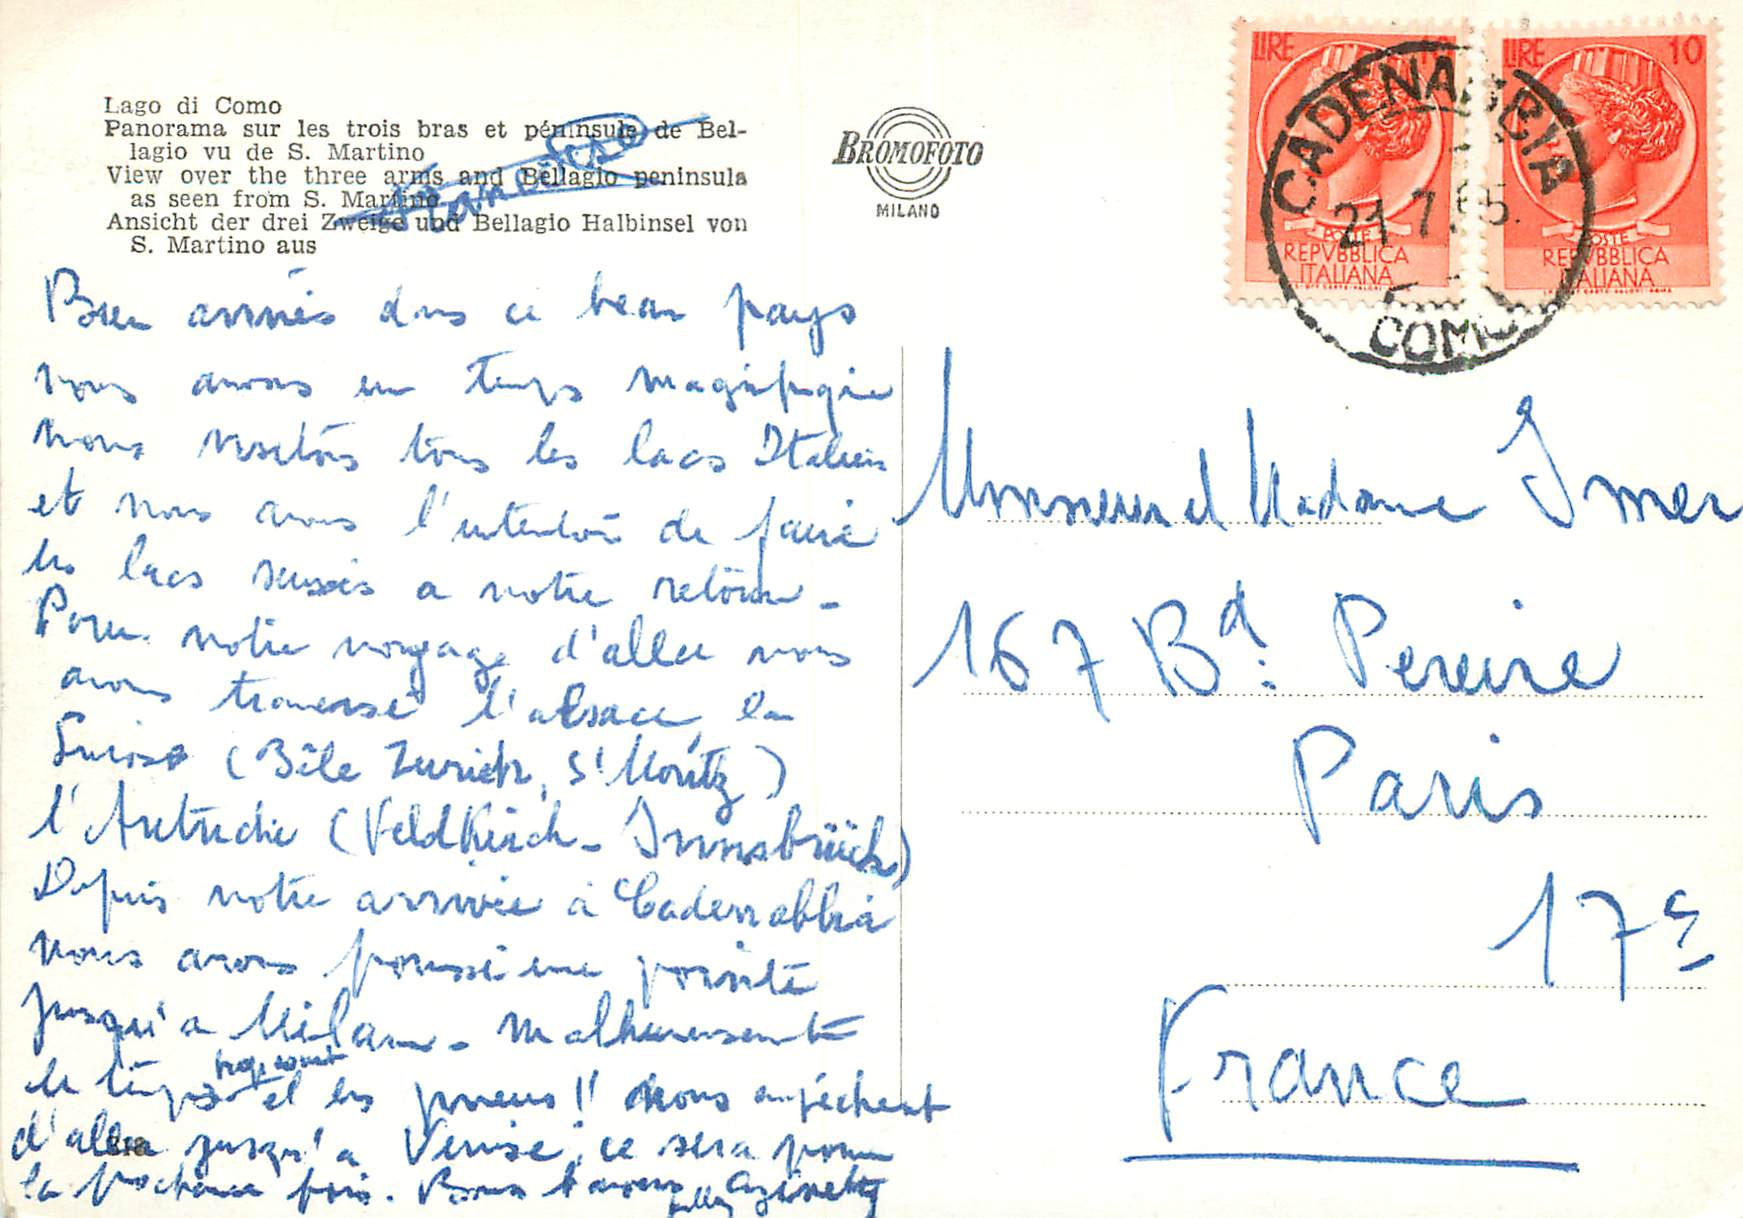 Lago di Como
Panorama sur les trois bras et péninsule de Bel-
lagio vu de S. Martino
View over the three arms and Bellagio peninsula
as seen from S. Martino
Ansicht der drei Zweige und Bellagio Halbinsel von
S. Martino aus
BROMOFOTO
MILANO
LIRE 10
POSTE
REPVBBLICA
ITALIANA
LIRE 10
POSTE
REPVBBLICA
ITALIANA
CADENABBIA
21.7.
COMO
Bien arrivés dans ce beau pays
nous avons un temps magnifique
nous visitons tous les lacs Italiens
et nous avons l'intention de faire
les lacs suisses a notre retour -
Pour notre voyage d'aller nous
avons traversé l'alsace, la
Suisse (Bâle Zurich, St Moritz)
l'Autriche (Veldkirch - Innsbrück)
Depuis notre arrivée à Cadenabbia
nous avons poussé une pointe
jusqu'a Milan - Malheureusement
le temps trop court et les pneus !! nous empéchent
d'aller jusqu'a Venise, ce sera pour
la prochaine fois. Bons
Monsieur et Madame Imer
167 Bd. Pereire
Paris
17e
France